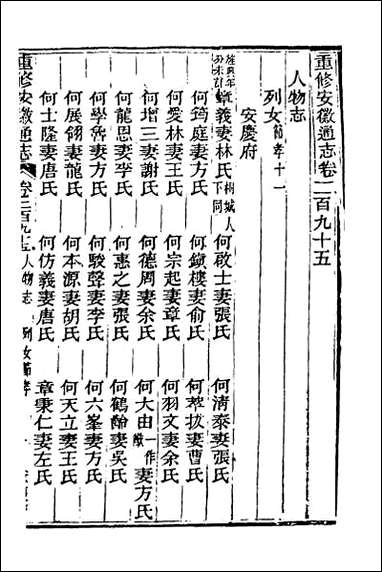 重修安徽通志卷二百九十五
人物志
列女節孝十一
安慶府
義妻林氏桐城人下同 何啟士妻張氏 何清泰妻張氏
何筠庭妻方氏 何鎮樓妻俞氏 何萃拔妻曹氏
何愛林妻王氏 何宗起妻章氏 何羽文妻余氏
何增三妻謝氏 何德周妻余氏 何大由一作猷妻方氏
何龍恩妻李氏 何惠之妻張氏 何鶴齡妻吳氏
何學魯妻方氏 何駿聲妻李氏 何六峯妻方氏
何展翎妻龍氏 何本源妻胡氏 何天立妻王氏
何士隆妻唐氏 何仿義妻唐氏 章秉仁妻左氏
重修安徽通志 卷二百九十五 人物志 列女節孝